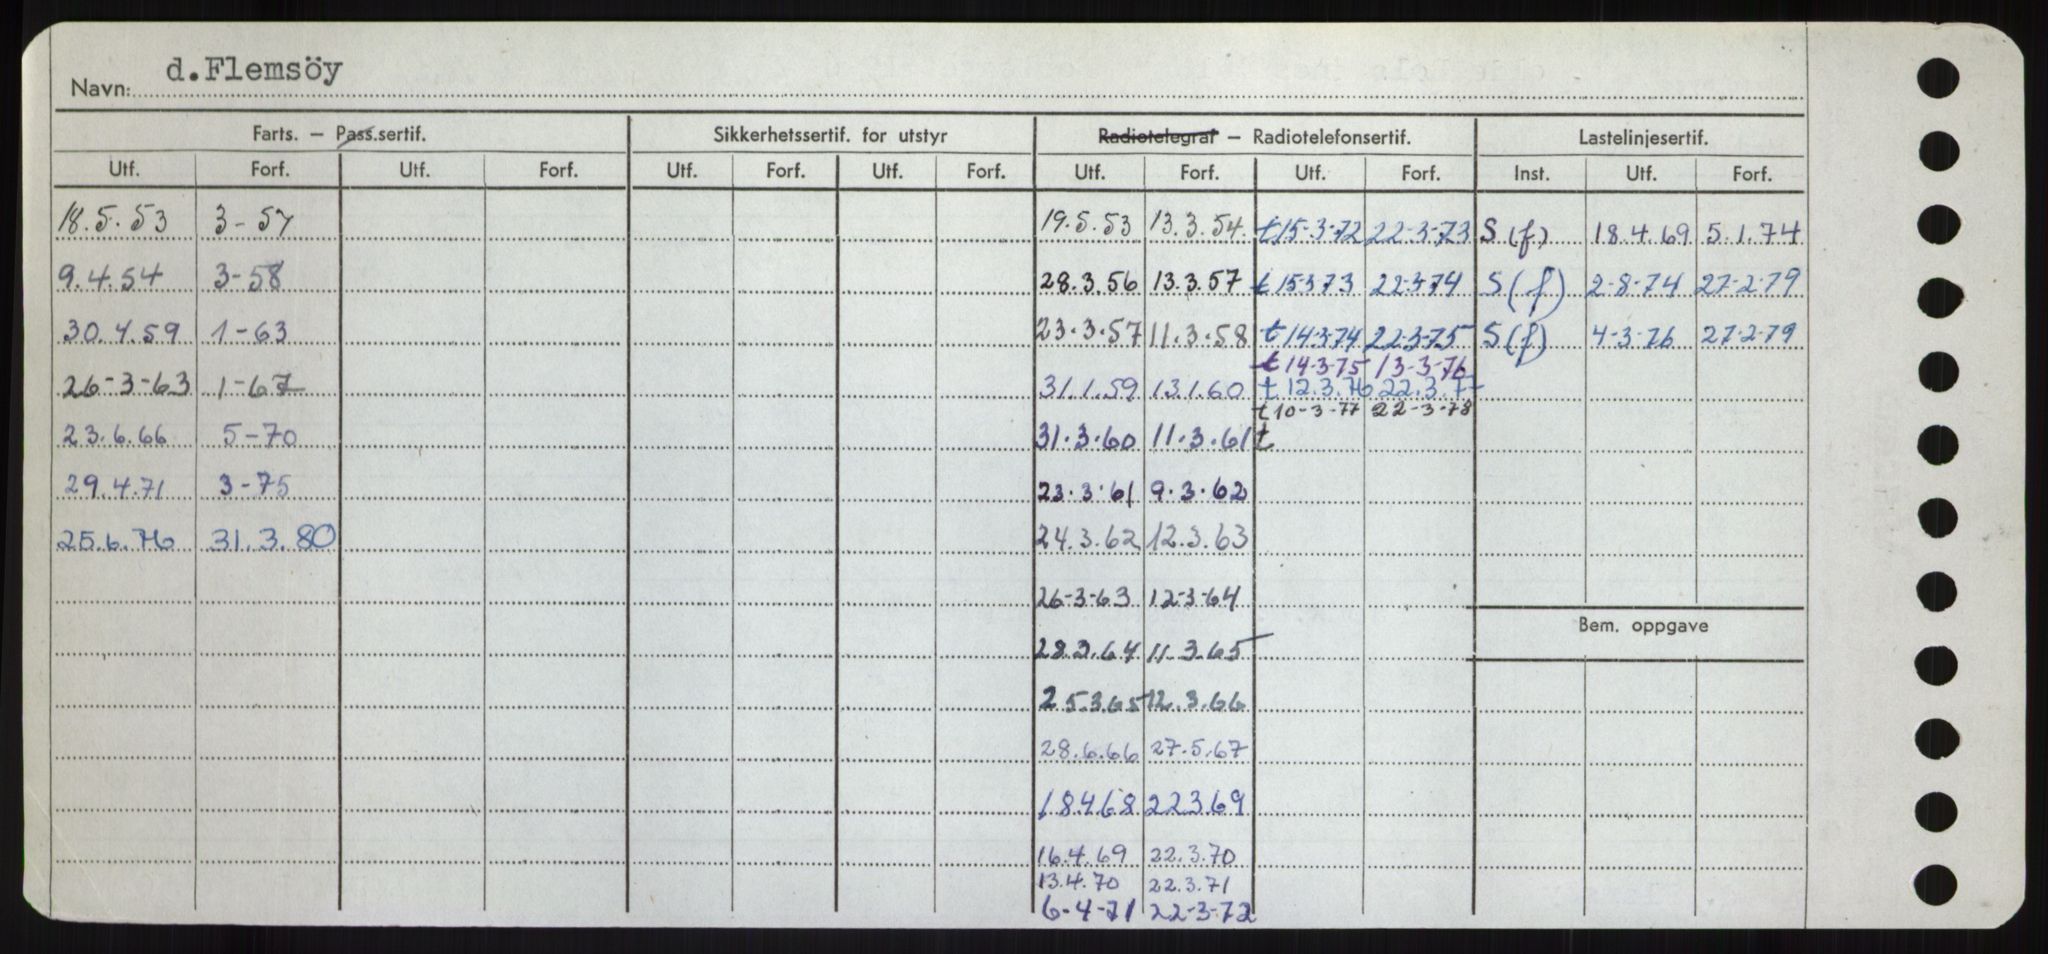 Navn: d. Flemsöy
Farts. – Pass.sertif. Sikkerhetssertif. for utstyr Radiotelegraf – Radiotelefonsertif. Lastelinjesertif.
Utf. Forf. Utf. Forf. Utf. Forf. Utf. Forf. Utf. Forf. Utf. Forf. Inst. Utf. Forf.
18.5.53 3-57 19.5.53 13.3.54 t 15-3-72 22-3-73 S (f) 18.4.69 5.1.74
9.4.54 3-58 28.3.56 13.3.57 t 15-3-73 22-3-74 S (f) 2-8-74 27-2-79
30.4.59 1-63 23.3.57 11.3.58 t 14-3-74 22-3-75 S (f) 4-3-76 27-2-79
t 14-3-75 13-3-76
26-3-63 1-67 31.1.59 13.1.60 t 12.3.76 22.3.77
t 10-3-77 22-3-78
23.6.66 5-70 31.3.60 11.3.61 t
29.4.71 3-75 23.3.61 9.3.62
25.6.76 31.3.80 24.3.62 12.3.63
26-3-63 12-3-64
Bem. oppgave
28.3.64 11.3.65
25.3.65 12.3.66
28.6.66 27.5.67
18.4.68 22.3.69
16.4.69 22.3.70
13.4.70 22.3.71
6-4-71 22-3-72